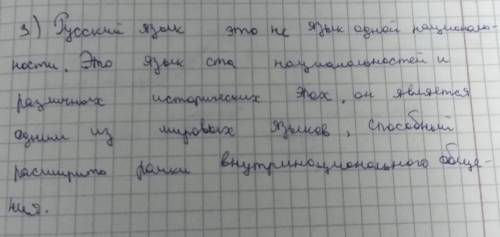 3) Русский язык это не язык одной националь-
ности. Это язык ста национальностей и
различных исторических эпох, он является
одним из мировых языков, способный
расширить рамки внутринационального обще-
ния.